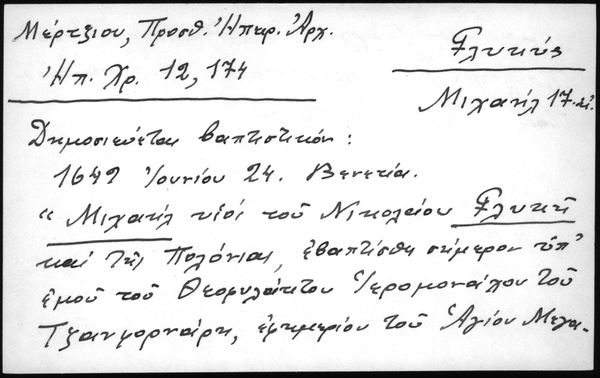 Μέρτζιου, Προσθ. Ἠπειρ. Ἀρχ.
Ἠπ. Χρ. 12, 174
Γλυκύς
Μιχαήλ 17.αἰ.
Δημοσιεύεται βαπτιστικόν:
1649 Ἰουνίου 24. Βενετία.
"Μιχαήλ υἱός τοῦ Νικολάου Γλυκῆ
καί τῆς Πολόνιας, ἐβαπτίσθη σήμερον ὑπ'
ἐμοῦ τοῦ Θεοφυλάκτου Ἱερομονάχου τοῦ
Τζανφορνάρη, ἐφημερίου τοῦ Ἁγίου Μεγα-